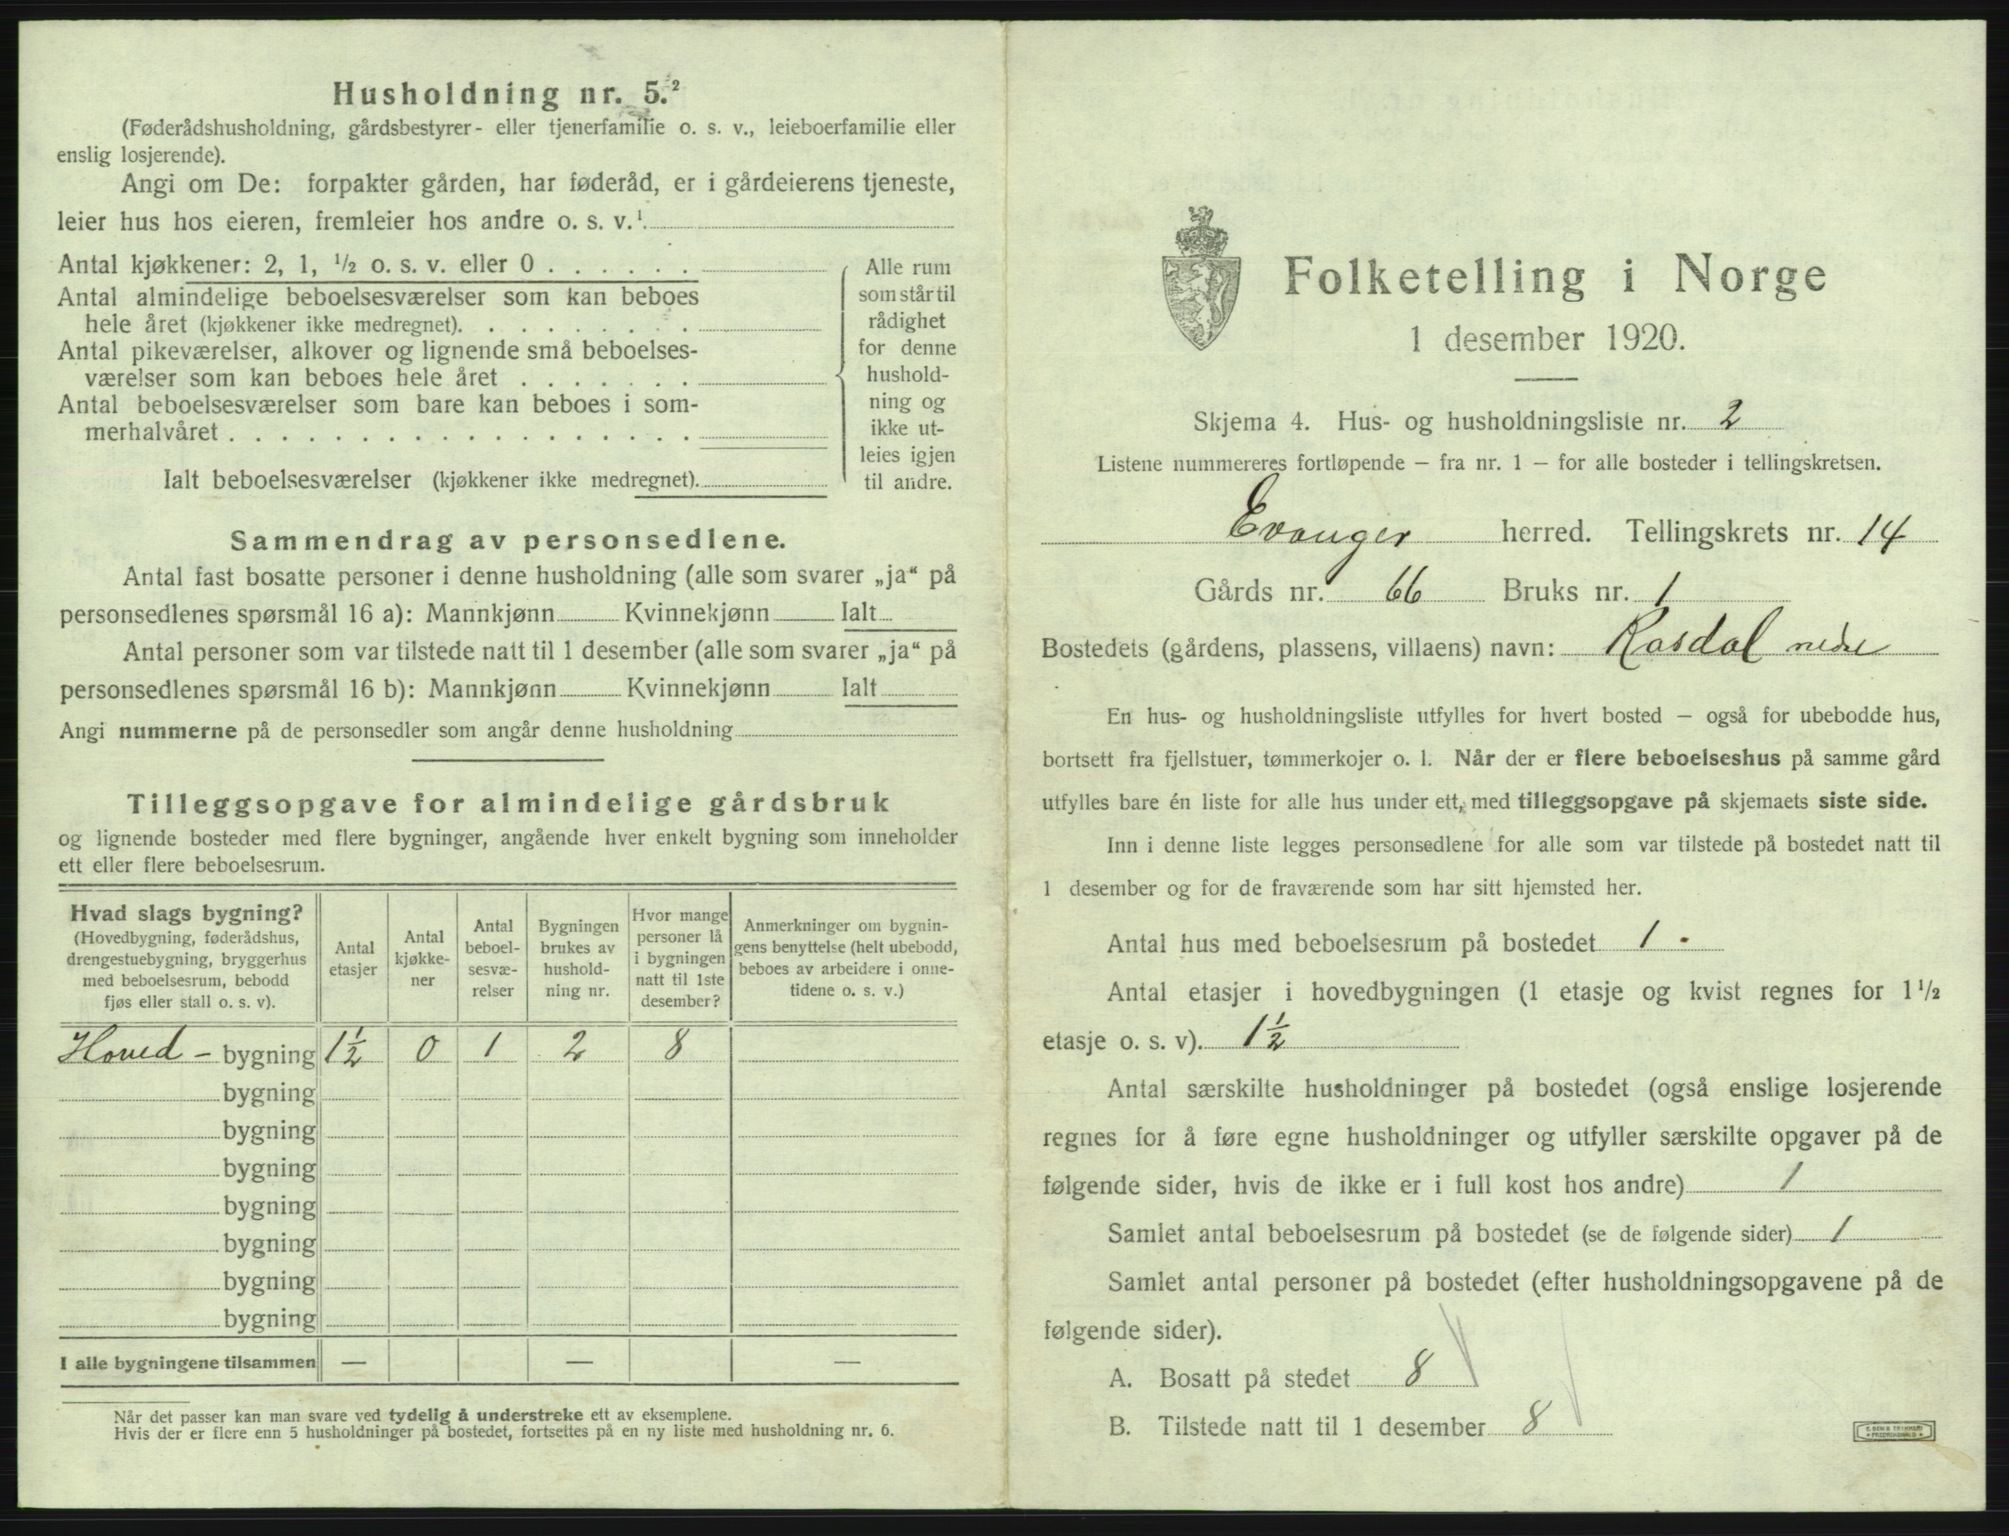 Husholdning nr. 5.²
(Føderådshusholdning, gårdsbestyrer- eller tjenerfamilie o. s. v., leieboerfamilie eller
enslig losjerende).
Angi om De: forpakter gården, har føderåd, er i gårdeierens tjeneste,
leier hus hos eieren, fremleier hos andre o. s. v.¹
Antal kjøkkener: 2, 1, ½ o. s. v. eller 0
Antal almindelige beboelsesværelser som kan beboes
hele året (kjøkkener ikke medregnet).
Antal pikeværelser, alkover og lignende små beboelses-
værelser som kan beboes hele året
Antal beboelsesværelser som bare kan beboes i som-
merhalvåret
Ialt beboelsesværelser (kjøkkener ikke medregnet).
Alle rum
som står til
rådighet
for denne
hushold-
ning og
ikke ut-
leies igjen
til andre.
Sammendrag av personsedlene.
Antal fast bosatte personer i denne husholdning (alle som svarer „ja“ på
personsedlenes spørsmål 16 a): Mannkjønn Kvinnekjønn Ialt
Antal personer som var tilstede natt til 1 desember (alle som svarer „ja“ på
personsedlenes spørsmål 16 b): Mannkjønn Kvinnekjønn Ialt
Angi nummerne på de personsedler som angår denne husholdning
Tilleggsopgave for almindelige gårdsbruk
og lignende bosteder med flere bygninger, angående hver enkelt bygning som inneholder
ett eller flere beboelsesrum.
Hvad slags bygning?
(Hovedbygning, føderådshus,
drengestuebygning, bryggerhus
med beboelsesrum, bebodd
fjøs eller stall o. s. v).
Antal
etasjer
Antal
kjøkke-
ner
Antal
beboel-
sesvæ-
relser
Bygningen
brukes av
hushold-
ning nr.
Hvor mange
personer lå
i bygningen
natt til 1ste
desember?
Anmerkninger om bygnin-
gens benyttelse (helt ubebodd,
beboes av arbeidere i onne-
tidene o. s. v.)
Hoved - bygning 1½ 0 1 2 8
bygning
bygning
bygning
bygning
bygning
bygning
bygning
I alle bygningene tilsammen — — —
Når det passer kan man svare ved tydelig å understreke ett av eksemplene.
Hvis der er flere enn 5 husholdninger på bostedet, fortsettes på en ny liste med husholdning nr. 6.
Folketelling i Norge
1 desember 1920.
Skjema 4. Hus- og husholdningsliste nr. 2
Listene nummereres fortløpende – fra nr. 1 – for alle bosteder i tellingskretsen.
Evanger herred. Tellingskrets nr. 14
Gårds nr. 66 Bruks nr. 1
Bostedets (gårdens, plassens, villaens) navn: Rasdal nedre
En hus- og husholdningsliste utfylles for hvert bosted – også for ubebodde hus,
bortsett fra fjellstuer, tømmerkojer o. l. Når der er flere beboelseshus på samme gård
utfylles bare én liste for alle hus under ett, med tilleggsopgave på skjemaets siste side.
Inn i denne liste legges personsedlene for alle som var tilstede på bostedet natt til
1 desember og for de fraværende som har sitt hjemsted her.
Antal hus med beboelsesrum på bostedet 1.
Antal etasjer i hovedbygningen (1 etasje og kvist regnes for 1½
etasje o. s. v). 1½
Antal særskilte husholdninger på bostedet (også enslige losjerende
regnes for å føre egne husholdninger og utfyller særskilte opgaver på de
følgende sider, hvis de ikke er i full kost hos andre) 1
Samlet antal beboelsesrum på bostedet (se de følgende sider) 1
Samlet antal personer på bostedet (efter husholdningsopgavene på de
følgende sider).
A. Bosatt på stedet 8
B. Tilstede natt til 1 desember 8